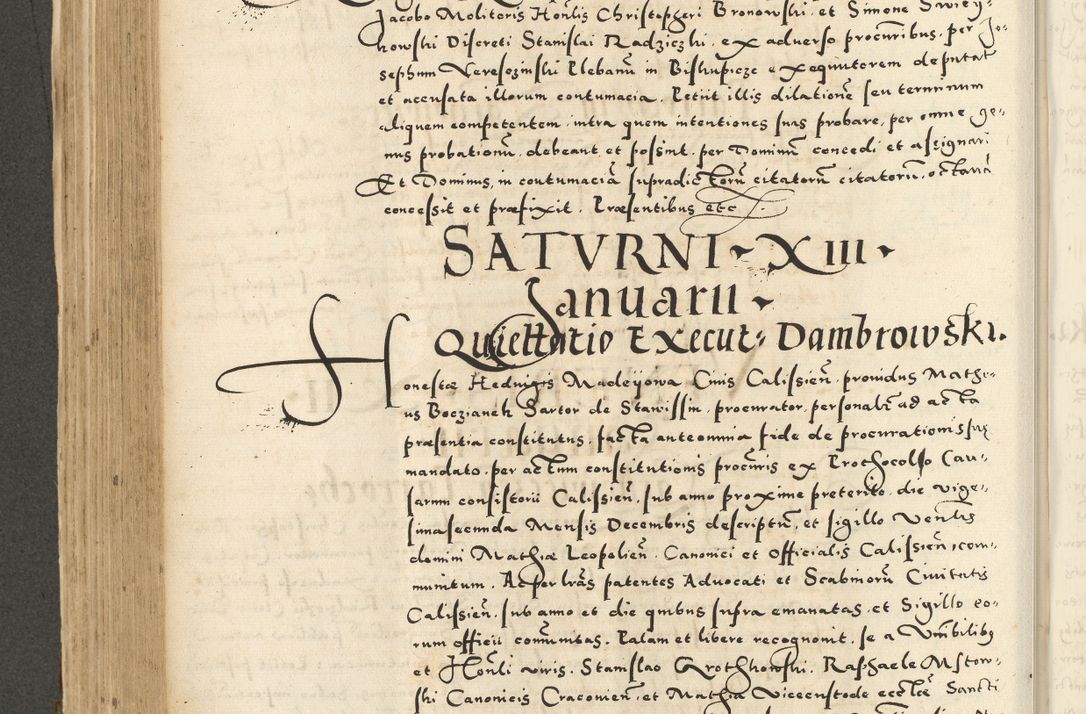 Jacobo Molitoris Honlis Christopheri Bronowski, et Simone
nowski Discreti Stanislai Radziczki, ex adverso procuribus, per Jo-
sephum Veresozinski Plebanū in Biskupicze exequutorem deputat
et accusata illorum contumacia. Petiit illis dilationē seu terminum
aliquem competentem, intra quem intentiones suas probare, per omne ge-
nus probationū, debeant et possint, per Dominū concedi et assignari
Et Dominus, in contumaciā supradictorū citatorū citatorū, octavā
concessit et præfixit. Præsentibus etc.
SATVRNI XIII
Januarii
Quiettatio Execut: Dambrowski.
Honestæ Hedvigis Madeyowa Civis Calissien̄, providus Mathe-
us Boczianek Sartor de Stawissin, procurator, personalr ad acta
præsentia constitutus, facta anteomnia fide de procurationis suæ
mandato, per actum constitutionis procuris ex Prothocolso Cau-
sarum consistorii Calissien̄, sub anno proxime preterito, die vige-
simasecunda Mensis Decembris descriptū, et sigillo Venlis
domini Mathiæ Leopolien̄. Canonici et Officialis Calissien̄, com-
munitum. Ac per lras patentes Advocati et Scabinorū Civitatis
Calissien̄, sub anno et die quibus supra emanatas, et Sigillo eo-
rum officii comunitas. Palam et libere recognovit, se a Vnbilibus
et Honli viris, Stanislao Grothkowski, Raphaele Mstow-
ski Canonicis Cracovien̄, et Mathia Vicecustode ecctæ Sancti